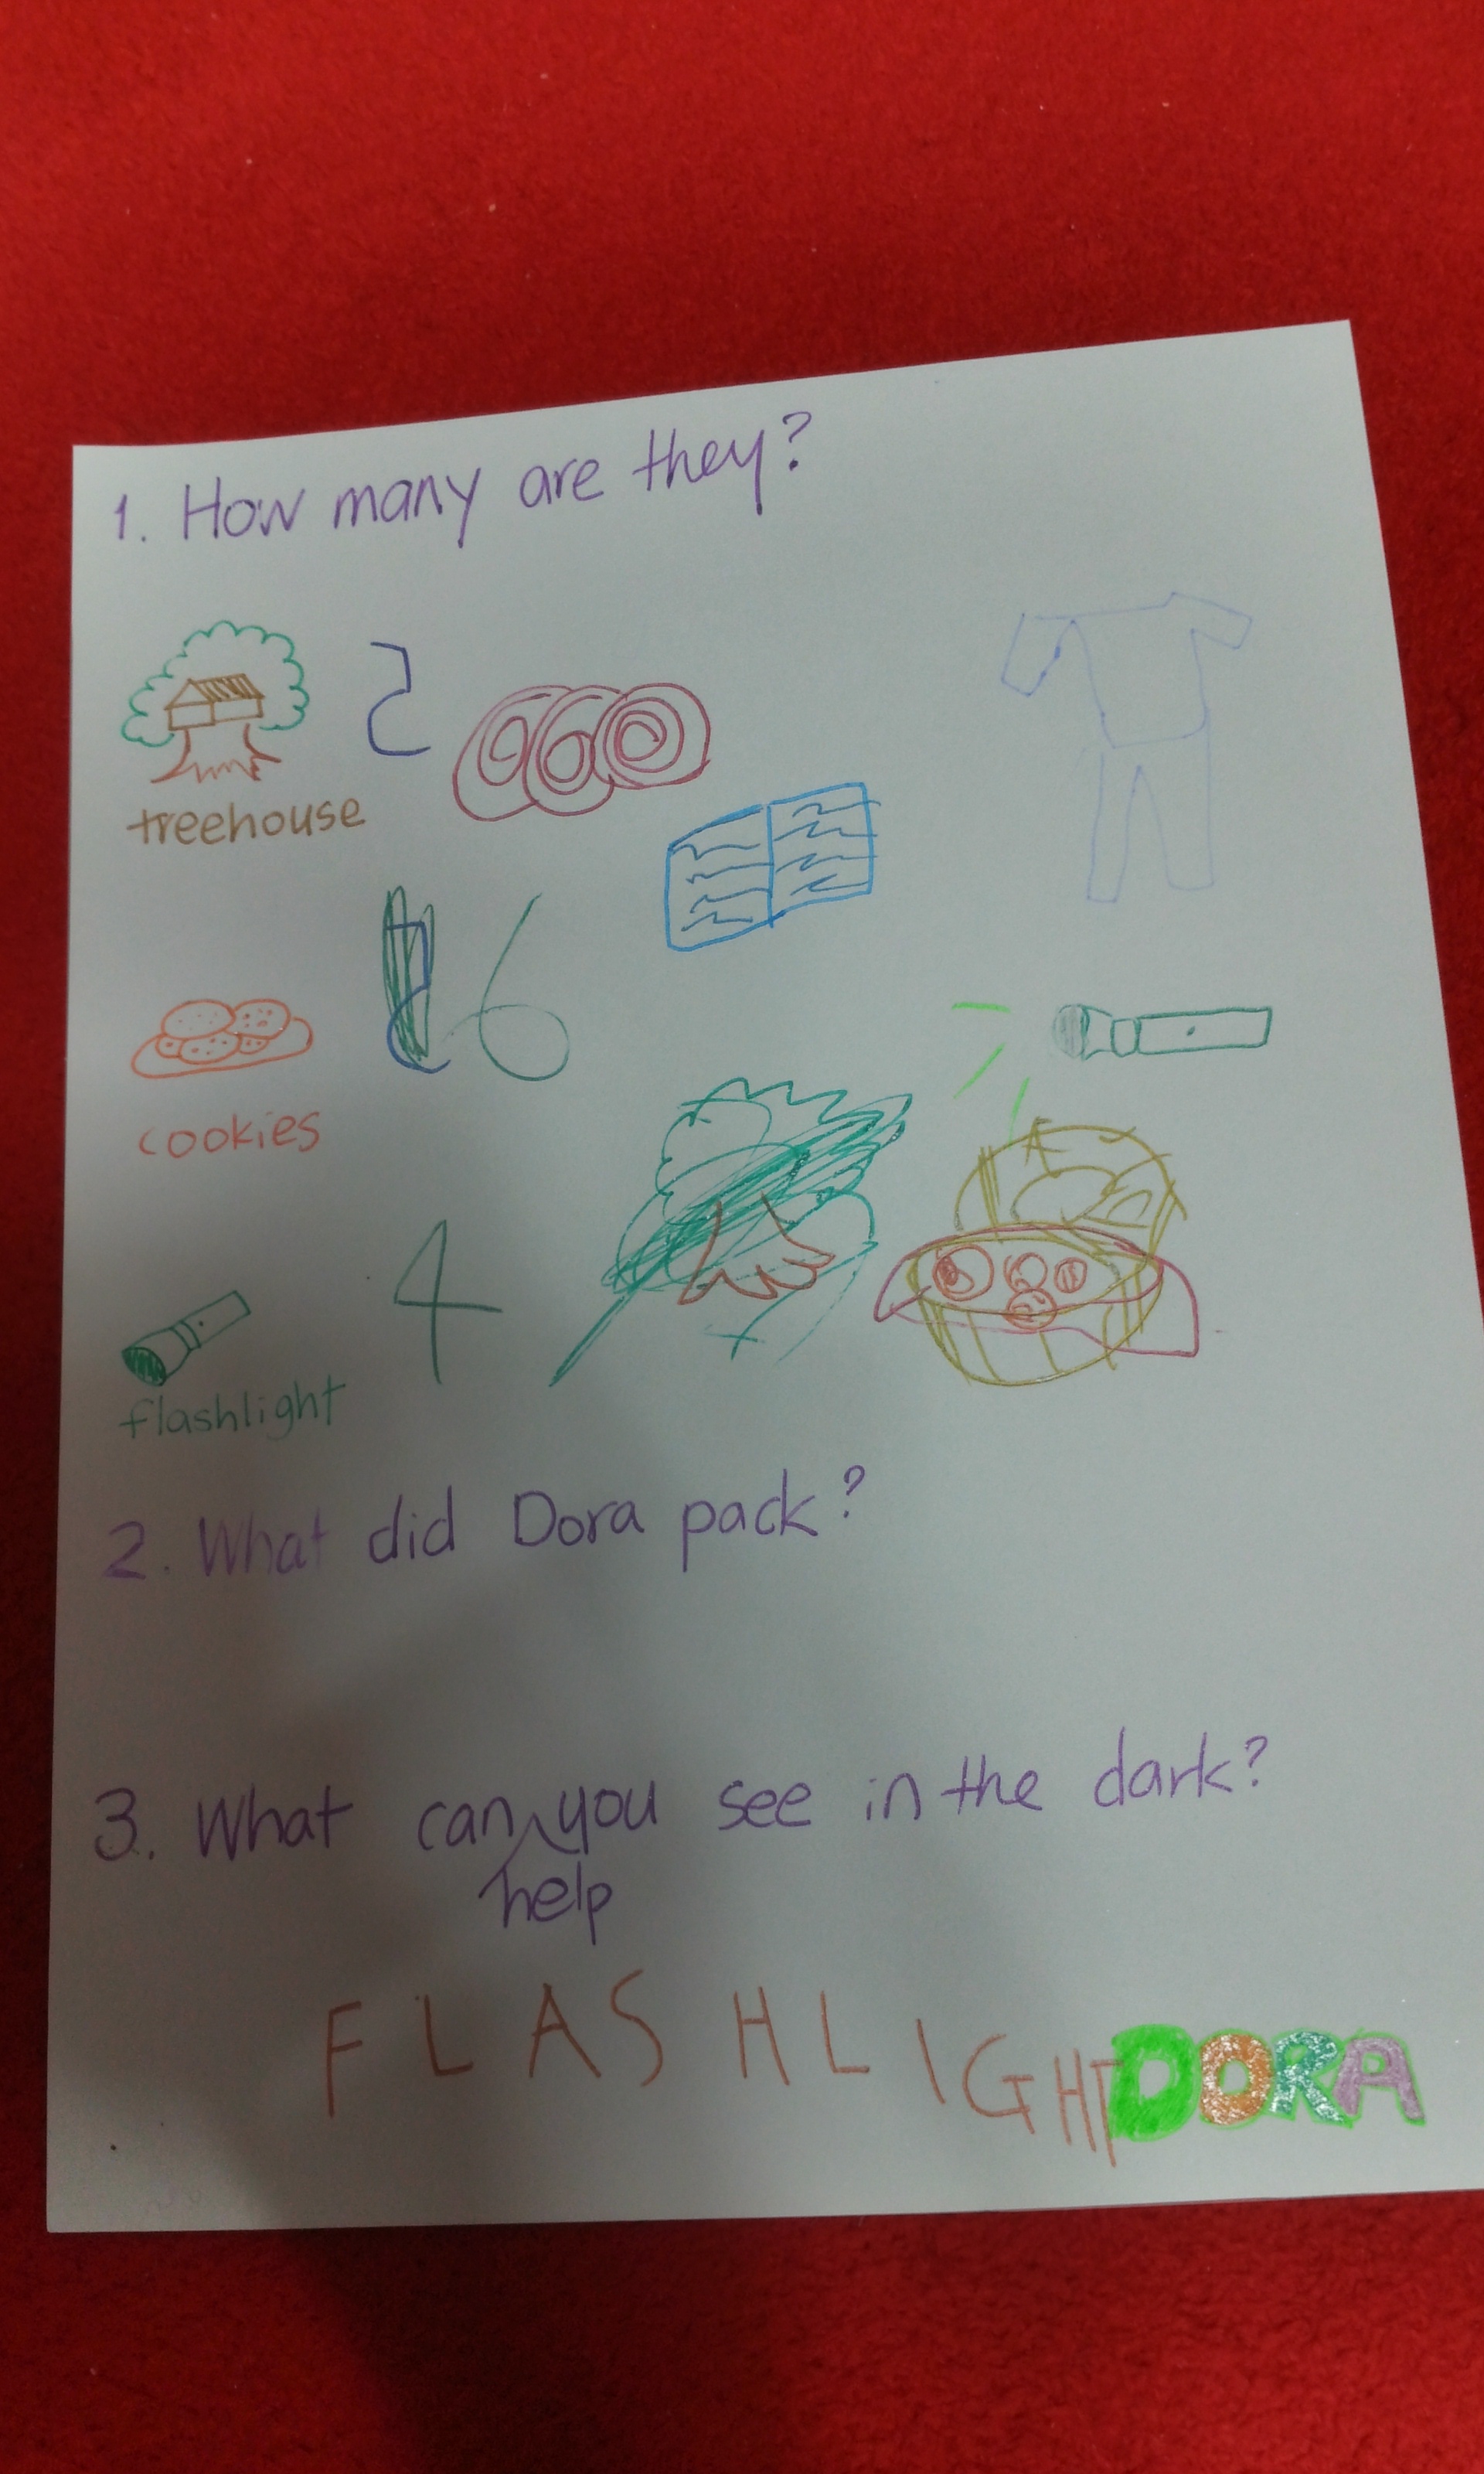 1. How many are they?
2
treehouse
6
cookies
4
flashlight
2. What did Dora pack?
3. What can you see in the dark?
help
FLASHLIGHT DORA